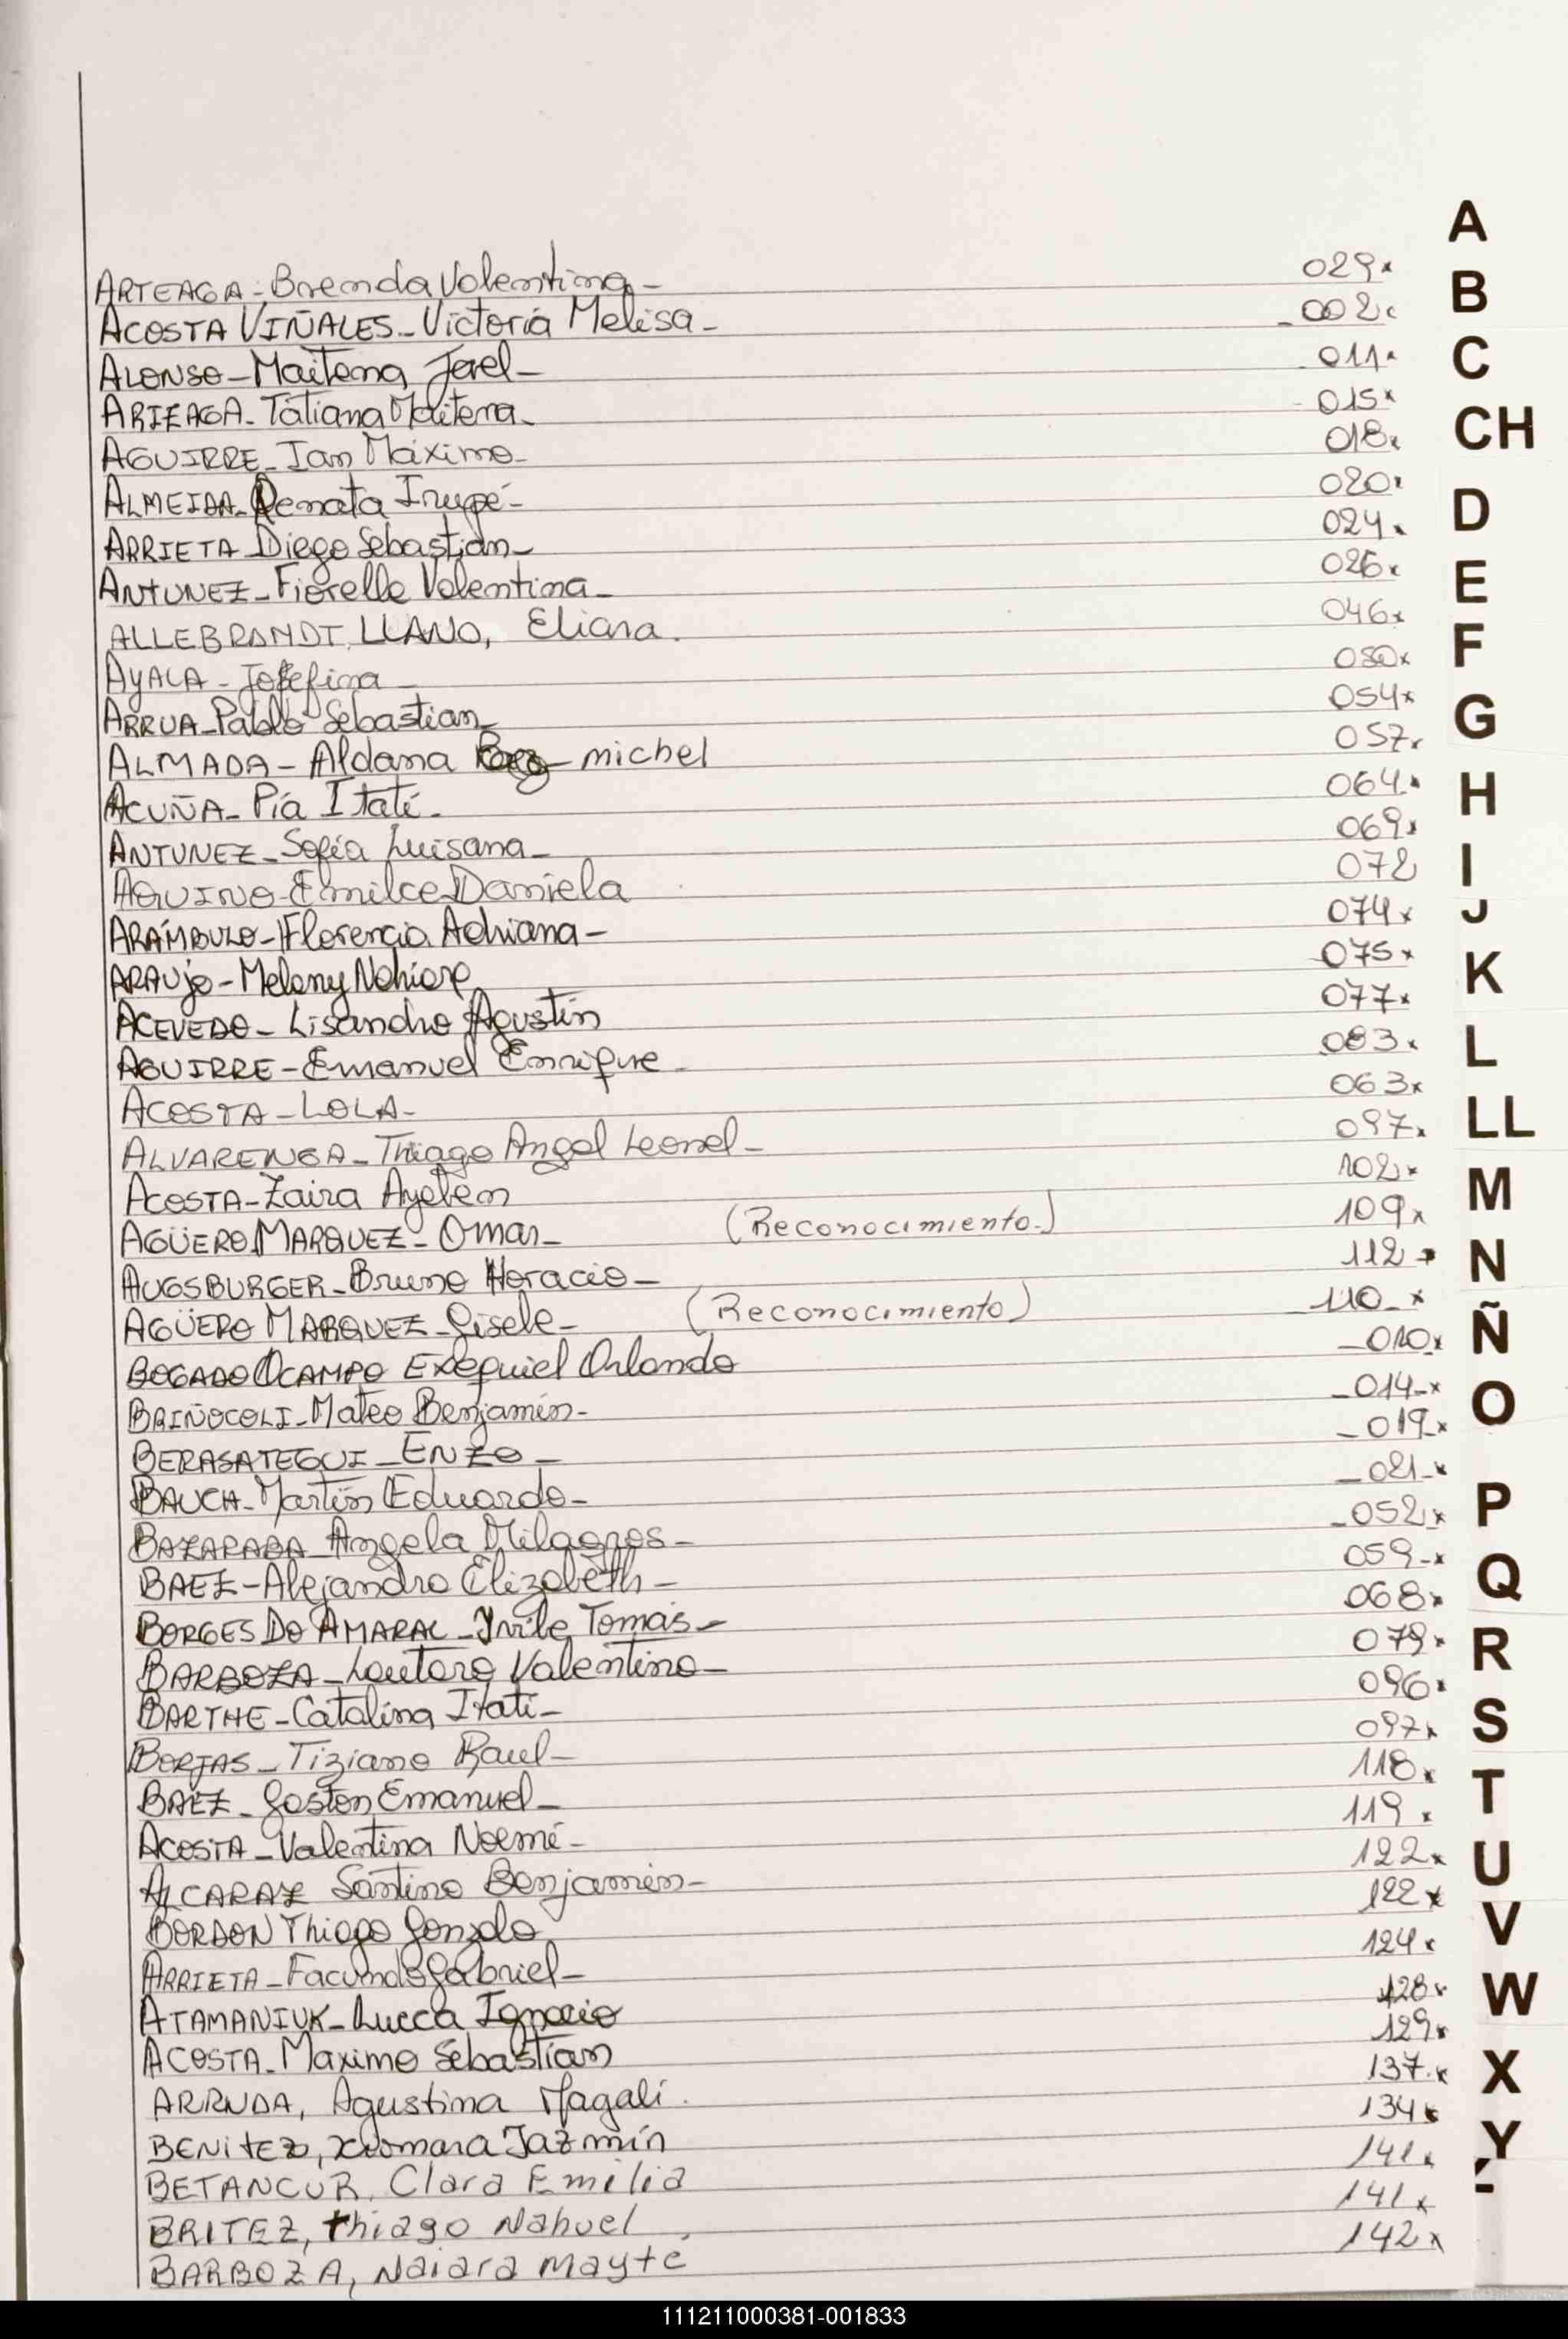 A
B
C
CH
D
E
F
G
H
I
J
K
L
LL
M
N
Ñ
O
P
Q
R
S
T
U
V
W
X
Y
ARTEAGA - Brenda Valentina - 029x
ACOSTA VIÑALES - Victoria Melisa - 002x
ALONSO - Maitena Jerel - 011x
ARTEAGA - Tatiana Maitena - 015x
AGUIRRE - Ian Máximo - 018x
ALMEIDA - Renata Irupé - 020x
ARRIETA Diego Sebastian - 024x
ANTUNEZ - Fiorella Valentina - 026x
ALLEBRANDT LLANO, Eliana. 046x
AYALA - Josefina - 050x
ARRUA - Pablo Sebastian - 054x
ALMADA - Aldana michel 057x
ACUÑA - Pía Itatí - 064x
ANTUNEZ - Sofía Luisana - 069x
AQUINO - Emilce Daniela 072
ARÁMBULO - Florencia Adriana - 074x
ARAUJO - Melany Nahiara 075x
ACEVEDO - Lisandro Agustín 077x
AGUIRRE - Emanuel Enrique - 083x
ACOSTA - LOLA - 063x
ALVARENGA - Thiago Angel Leonel - 097x
ACOSTA - Zaira Ayelen 102x
AGÜERO MARQUEZ - Omar - (Reconocimiento.) 109x
AUGSBURGER - Bruno Horacio - 112x
AGÜERO MARQUEZ - Gisele - (Reconocimiento) 110 x
BOGADO OCAMPO Exequiel Orlando 010x
BRIÑOCOLI - Mateo Benjamín - 014-x
BERASATEGUI - ENZO - 019-x
BAUCH - Martín Eduardo - 021-x
BAZARABA Angela Milagros - 052x
BAEZ - Alejandro Elizabeth - 059-x
BORGES DO AMARAL - Tomás - 068x
BARBOZA - Lautaro Valentino - 079x
BARTHE - Catalina Itatí - 096x
BORJAS - Tiziano Raul - 097x
BAEZ - Gastón Emanuel - 118x
ACOSTA - Valentina Noemí - 119x
ALCARAZ Santino Benjamín - 122x
BORDON Thiago Gonzalo 122x
ARRIETA - Facundo Gabriel - 124x
ATAMANIUK - Lucca Ignacio 128x
ACOSTA - Maximo Sebastian 129x
ARRUDA, Agustina Magalí. 137.x
BENITEZ, Xiomara Jazmín 134x
BETANCUR, Clara Emilia 141x
BRITEZ, Thiago Nahuel 141x
BARBOZA, Naiara Mayté 142x
111211000381-001833